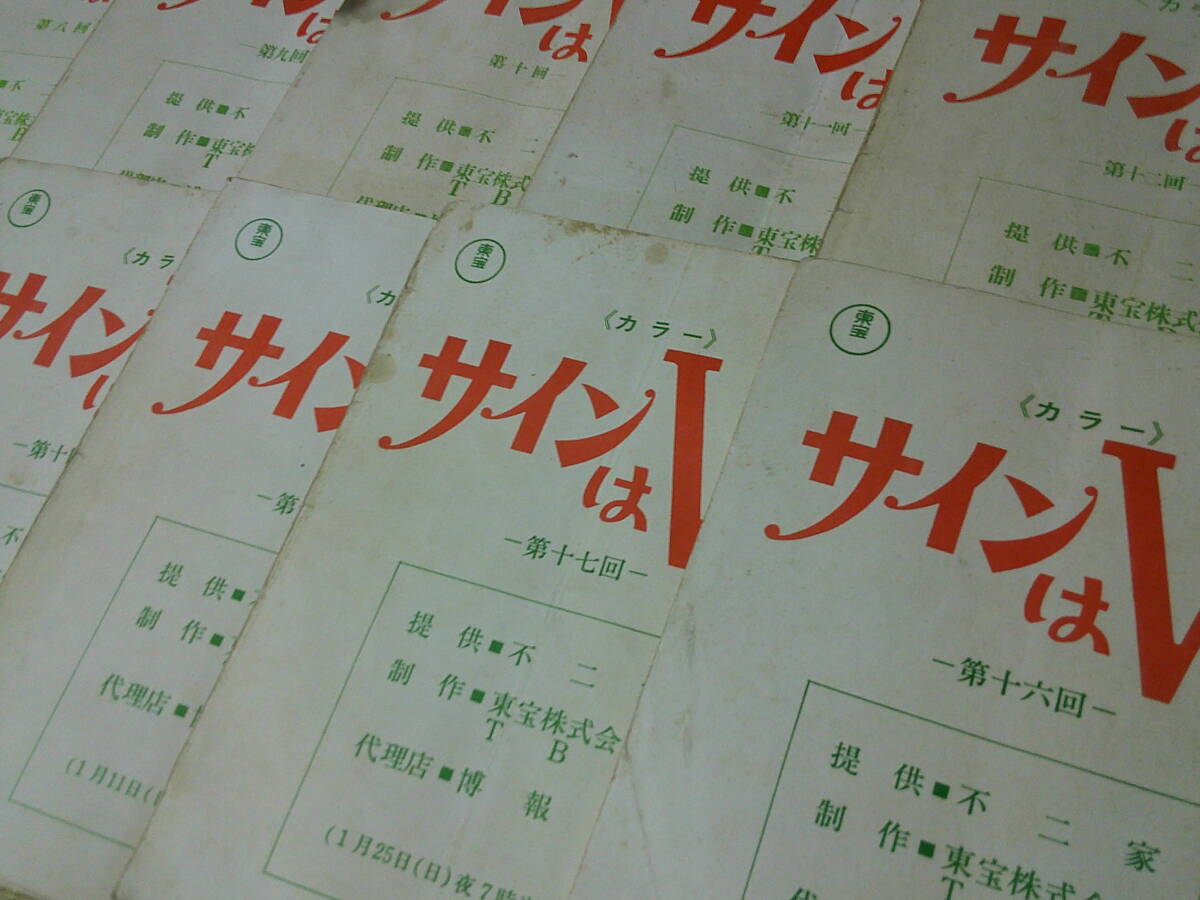 第八回
不
B
は
第九回
提 供■不
制 作■東宝株
T
サイン
は
第十回―
提 供■不 二
制 作■東宝株式
T B
代理店■
サイン
は
―第十一回―
提 供■不
制 作■東宝株
サイン
は
―第十二回―
提 供■不 二
制 作■東宝株式
東宝
《カラ
サイン
は
―第十
不
東宝
《カ
サイン
―第
提 供■
制 作■
代理店■
(1月11日(
東宝
《カラー》
サインはV
―第十七回―
提 供■不 二
制 作■東宝株式会
T B
代理店■博 報
(1月25日(日)夜7時
東宝
《カラー》
サインはV
―第十六回―
提 供■不 二 家
制 作■東宝株式会
T
代